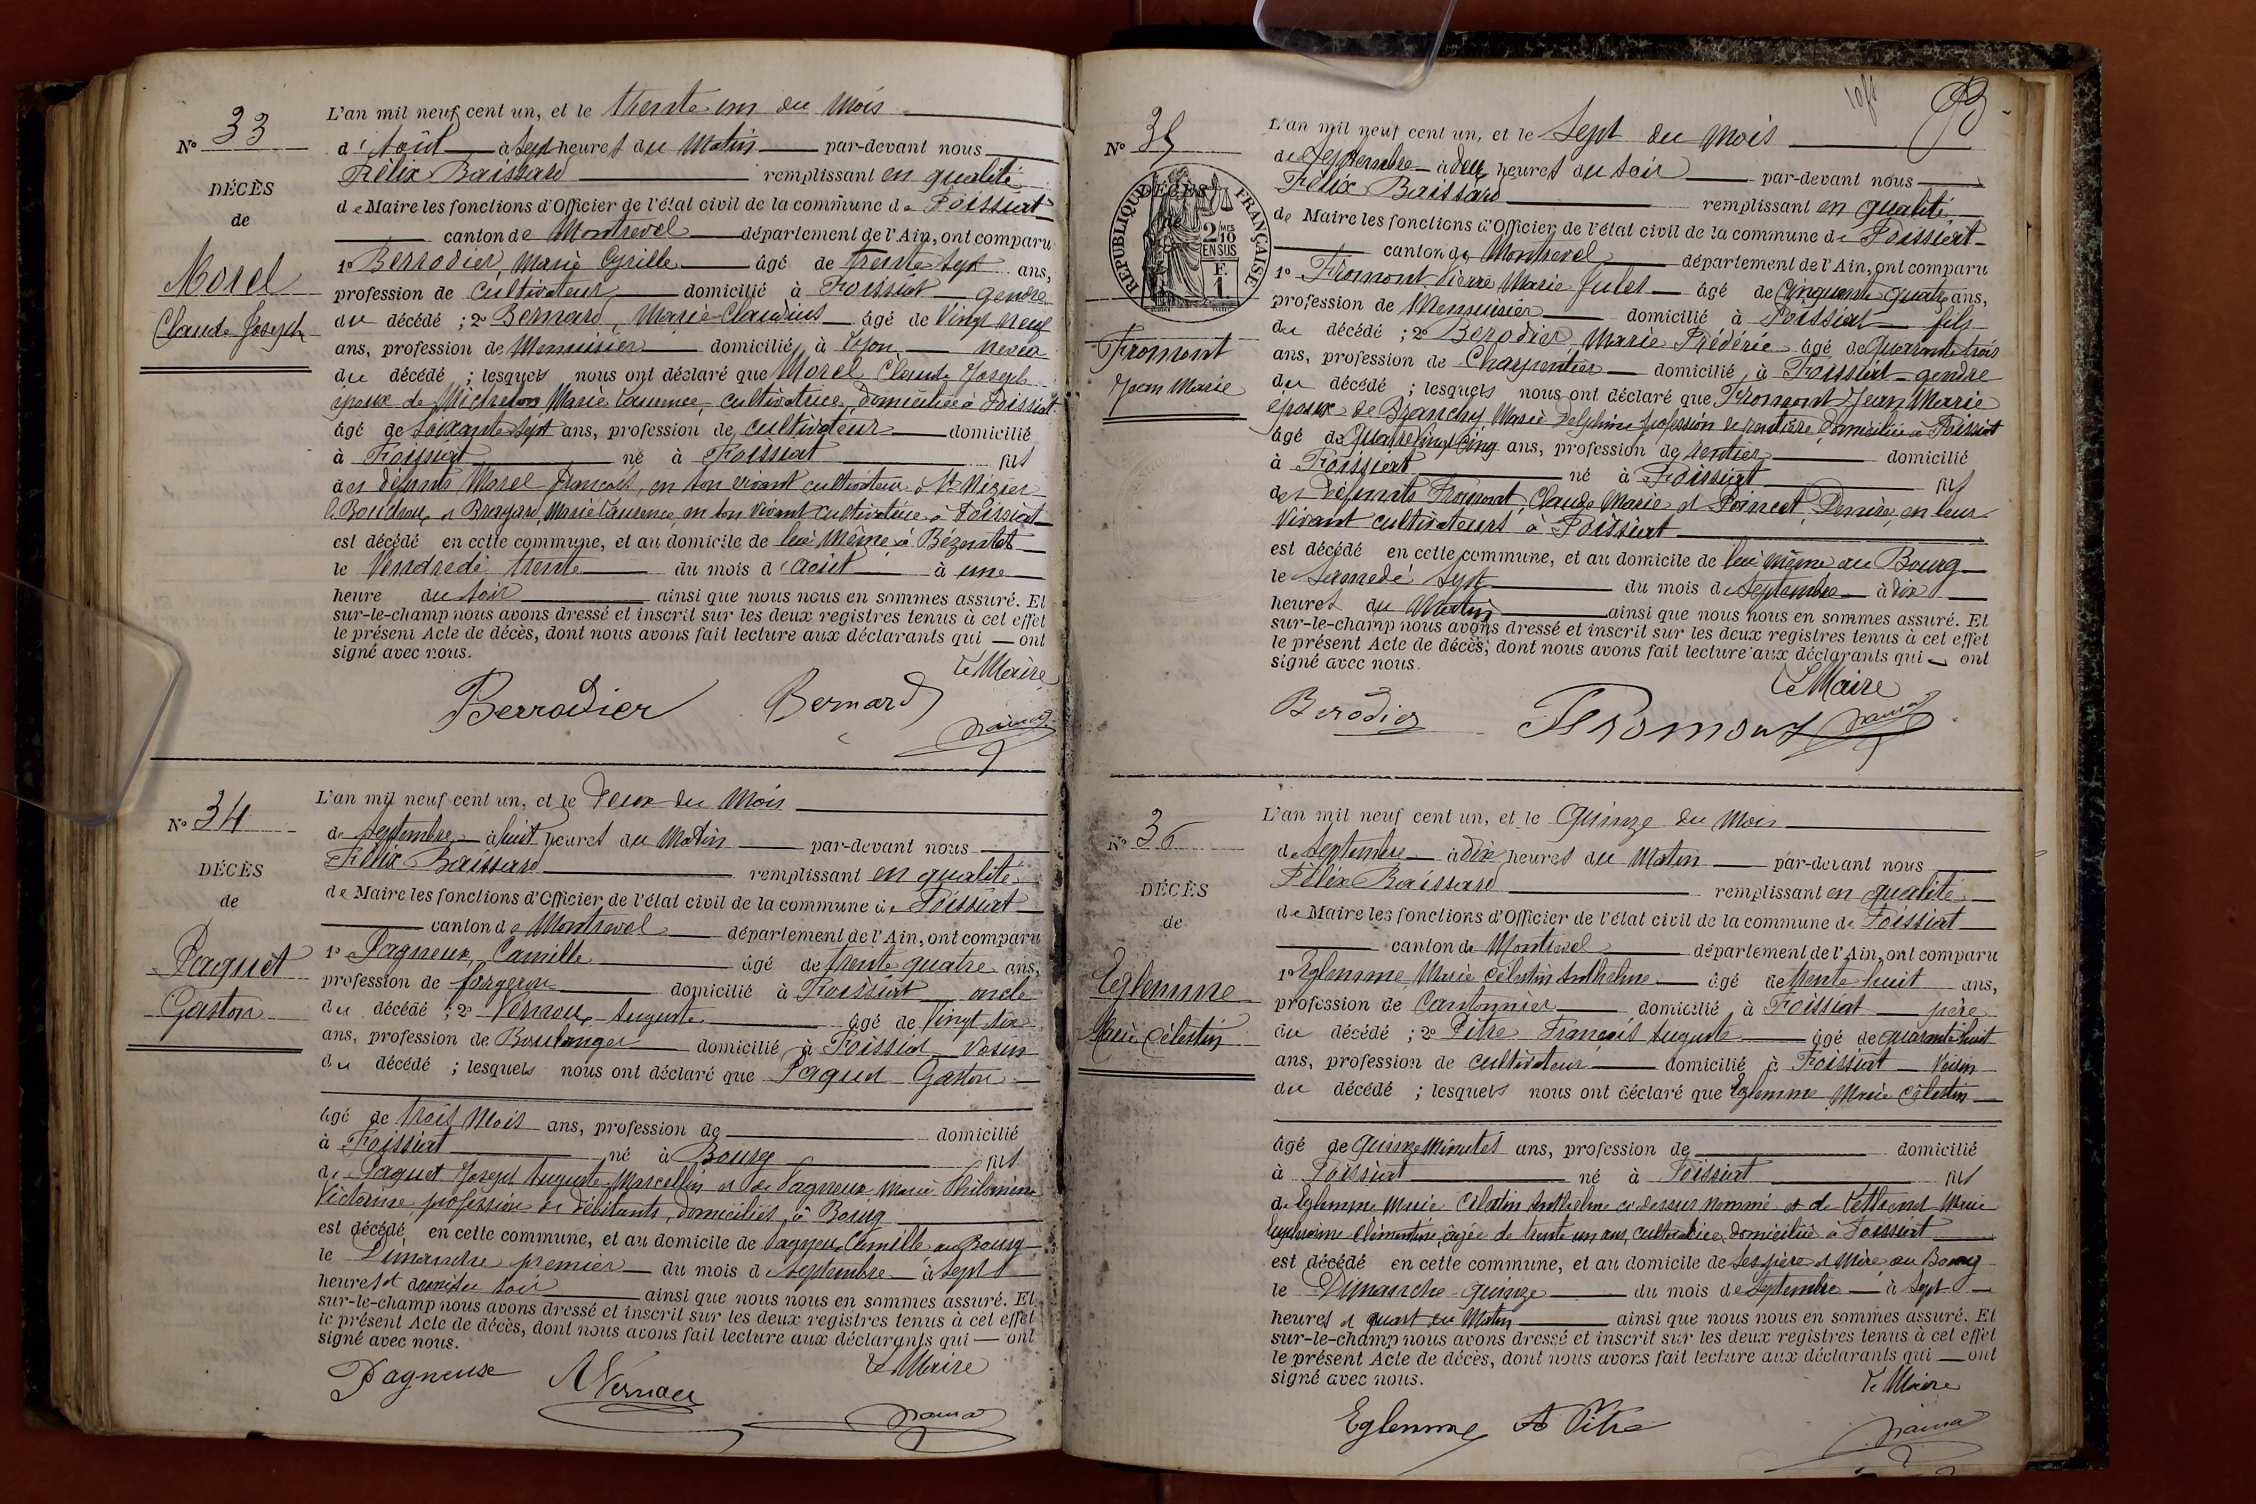 N° 33
DÉCÈS
de
Morel
Claude Joseph
L'an mil neuf cent un, et le trente un du Mois
d'Août à sept heures du Matin par-devant nous
Félix Baissard remplissant en qualité
de Maire les fonctions d'Officier de l'état civil de la commune de Foissiat
canton de Montrevel département de l'Ain, ont comparu
1° Berrodier, Marie Cyrille âgé de trente sept ans,
profession de cultivateur domicilié à Foissiat gendre
du décédé ; 2° Bernard, Marie Claudius âgé de Vingt neuf
ans, profession de Menuisier domicilié à Lyon neveu
du décédé ; lesquels nous ont déclaré que Morel Claude Joseph
époux de Michelon Marie Laurence, cultivatrice, domiciliée à Foissiat
âgé de soixante sept ans, profession de cultivateur domicilié
à Foissiat né à Foissiat fils
des défunts Morel François, en son vivant cultivateur à St Nizier
l. Bouchoux et Brayard, Marie Laurence, en son vivant cultivatrice à Foissiat
est décédé en cette commune, et au domicile de lui même à Bézentet
le Vendredi trente du mois d'août à une
heure du soir ainsi que nous nous en sommes assuré. Et
sur-le-champ nous avons dressé et inscrit sur les deux registres tenus à cet effet
le présent Acte de décès, dont nous avons fait lecture aux déclarants qui ont
signé avec nous.
Le Maire
Berrodier Bernard
N° 34
DÉCÈS
de
Paguet
Gaston
L'an mil neuf cent un, et le Deux du Mois
de Septembre à huit heures du Matin par-devant nous
Félix Baissard remplissant en qualité
de Maire les fonctions d'Officier de l'état civil de la commune de Foissiat
canton de Montrevel département de l'Ain, ont comparu
1° Pagneux, Camille âgé de trente quatre ans,
profession de forgeron domicilié à Foissiat oncle
du décédé ; 2° Vernoux Auguste âgé de Vingt six
ans, profession de Boulanger domicilié à Foissiat Voisin
du décédé ; lesquels nous ont déclaré que Paguet Gaston
âgé de trois Mois ans, profession de domicilié
à Foissiat né à Bourg fils
de Paguet Joseph Auguste Marcellin et de Pagneux Marie Philomène
Victorine profession de débitants, domiciliés à Bourg
est décédé en cette commune, et au domicile de Pagneux Camille au Bourg
le Dimanche premier du mois de Septembre à sept
heures et demie du soir ainsi que nous nous en sommes assuré. Et
sur-le-champ nous avons dressé et inscrit sur les deux registres tenus à cet effet
le présent Acte de décès, dont nous avons fait lecture aux déclarants qui ont
signé avec nous.
Le Maire
Pagneux A Vernoux
93
N° 35
RÉPUBLIQUE FRANÇAISE
DÉCÈS
de
2 MES
10
EN SUS
F.
1
Fromont
Jean Marie
L'an mil neuf cent un, et le Sept du Mois
de Septembre à deux heures du soir par-devant nous
Félix Baissard remplissant en qualité
de Maire les fonctions d'Officier de l'état civil de la commune de Foissiat
canton de Montrevel département de l'Ain, ont comparu
1° Fromont Pierre Marie Jules âgé de Cinquante quatre ans,
profession de Menuisier domicilié à Foissiat fils
du décédé ; 2° Berodier Marie Frédéric âgé de Quarante trois
ans, profession de Charpentier domicilié à Foissiat gendre
du décédé ; lesquels nous ont déclaré que Fromont Jean Marie
époux de Branchy Marie Delphine profession de rentière domiciliée à Foissiat
âgé de Quatre Vingt Cinq ans, profession de rentier domicilié
à Foissiat né à Foissiat fils
des défunts Fromont, Claude Marie et Poincet, Denise, en leur
Vivant cultivateurs à Foissiat
est décédé en cette commune, et au domicile de lui même au Bourg
le Samedi Sept du mois de Septembre à dix
heures du Matin ainsi que nous nous en sommes assuré. Et
sur-le-champ nous avons dressé et inscrit sur les deux registres tenus à cet effet
le présent Acte de décès, dont nous avons fait lecture aux déclarants qui ont
signé avec nous.
Le Maire
Berodier Fromont
N° 36
DÉCÈS
de
Eglemme
Marie Célestin
L'an mil neuf cent un, et le Quinze du Mois
de Septembre à dix heures du Matin par-devant nous
Félix Baissard remplissant en qualité
de Maire les fonctions d'Officier de l'état civil de la commune de Foissiat
canton de Montrevel département de l'Ain, ont comparu
1° Eglemme, Marie Célestin Anthelme âgé de trente huit ans,
profession de Cantonnier domicilié à Foissiat père
du décédé ; 2° Pitre François Auguste âgé de quarante huit
ans, profession de cultivateur domicilié à Foissiat Voisin
du décédé ; lesquels nous ont déclaré que Eglemme Marie Célestin
âgé de Quinze Minutes ans, profession de domicilié
à Foissiat né à Foissiat fils
de Eglemme Marie Célestin Anthelme ci-dessus nommé et de Marie
Clémentine, âgée de trente un ans, cultivatrice, domiciliée à Foissiat
est décédé en cette commune, et au domicile de Ses père et Mère au Bourg
le Dimanche quinze du mois de Septembre à Sept
heures et quart du Matin ainsi que nous nous en sommes assuré. Et
sur-le-champ nous avons dressé et inscrit sur les deux registres tenus à cet effet
le présent Acte de décès, dont nous avons fait lecture aux déclarants qui ont
signé avec nous.
Le Maire
Eglemme A Pitre